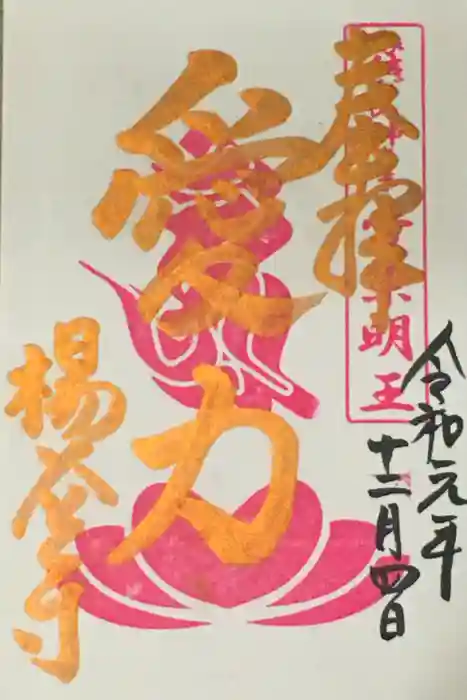 奉拝
明王
令和元年
十二月四日
愛力
楊谷寺